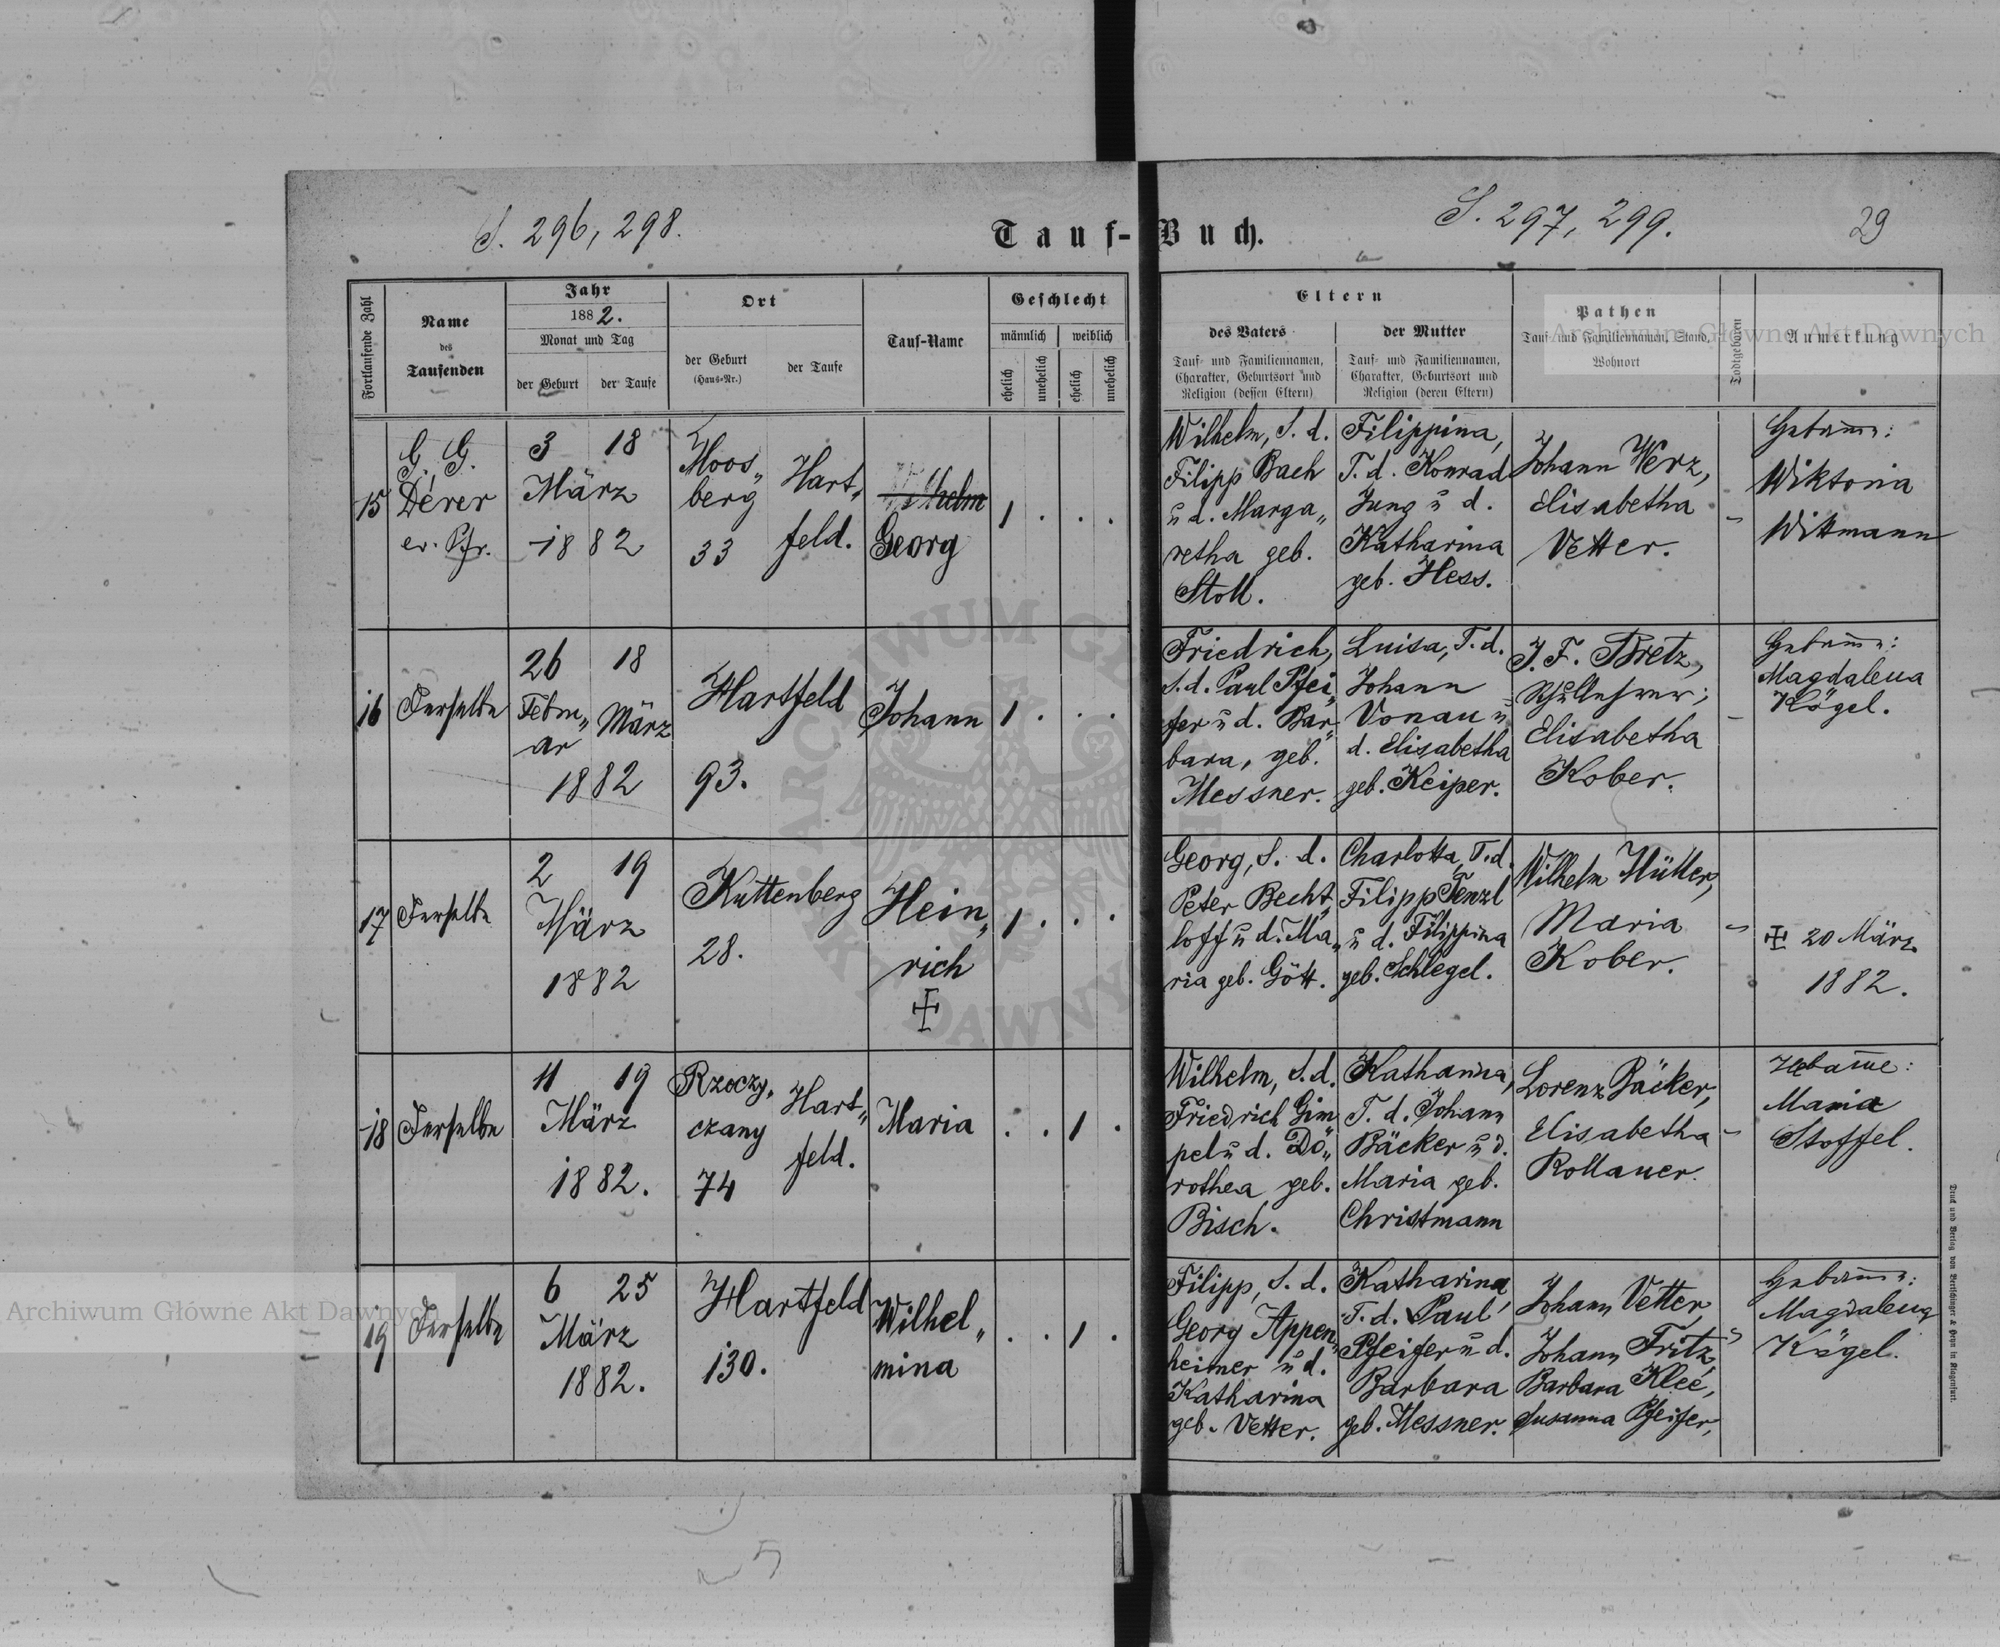 S. 296, 298.
S. 297, 299.
29
Tauf-Buch.
Fortlaufende Zahl
Name
des
Taufenden
Jahr
1882.
Monat und Tag
der Geburt
der Taufe
Ort
der Geburt
(Haus-Nr.)
der Taufe
Tauf-Name
Geschlecht
männlich
weiblich
ehelich
unehelich
ehelich
unehelich
Eltern
des Vaters
Tauf- und Familiennamen,
Charakter, Geburtsort und
Religion (dessen Eltern)
der Mutter
Tauf- und Familiennamen,
Charakter, Geburtsort und
Religion (deren Eltern)
Pathen
Tauf- und Familiennamen, Stand,
Wohnort
Todtgeboren
Anmerkung
15
G. G.
Dérer
ev. Pfr.
3
18
März
1882
Moos„
berg
33
Hart„
feld.
Wilhelm
Georg
1 . . .
Wilhelm, S. d.
Filipp Bach
u d. Marga„
retha geb.
Stoll.
Filippina,
T. d. Konrad
Jung u d.
Katharina
geb. Hess.
Johann Werz,
Elisabetha
Vetter.
–
Hebamme:
Wiktoria
Wittmann
16
Derselbe
26
Febru„
ar
18
März
1882
Hartfeld
93.
Johann
1 . . .
Friedrich,
S. d. Paul Pfei„
fer u d. Bar„
bara, geb.
Messner.
Luisa, T. d.
Johann
Vonau u
d. Elisabetha
geb. Keiper.
J. F. Bretz,
Schullehrer;
Elisabetha
Kober.
–
Hebamme:
Magdalena
Kögel.
17
Derselbe
2
19
März
1882
Kuttenberg
28.
Hein„
rich
1 . . .
Georg, S. d.
Peter Becht„
loff u d. Ma„
ria geb. Gött.
Charlotta, T. d.
Filipp Tenzl
u d. Filippina
geb. Schlegel.
Wilhelm Müller,
Maria
Kober.
–
20 März
1882.
18
Derselbe
11
19
März
1882.
Rzeczy„
czany
74
Hart„
feld.
Maria
. . 1 .
Wilhelm, S. d.
Friedrich Gim
pel u d. Do„
rothea geb.
Bisch.
Katharina,
T. d. Johann
Bäcker u d.
Maria geb.
Christmann
Lorenz Bäcker,
Elisabetha
Rollauer.
–
Hebamme:
Maria
Stoffel.
19
Derselbe
6
25
März
1882.
Hartfeld
130.
Wilhel„
mina
. . 1 .
Filipp, S. d.
Georg Appen„
heimer u d.
Katharina
geb. Vetter.
Katharina
T. d. Paul
Pfeifer u d.
Barbara
geb. Messner.
Johann Vetter,
Johann Fritz,
Barbara Klee,
Susanna Pfeifer,
Hebamme:
Magdalena
Kögel.
Druck und Verlag von Bertschinger & Heyn in Klagenfurt.
Archiwum Główne Akt Dawnych
Archiwum Główne Akt Dawnych